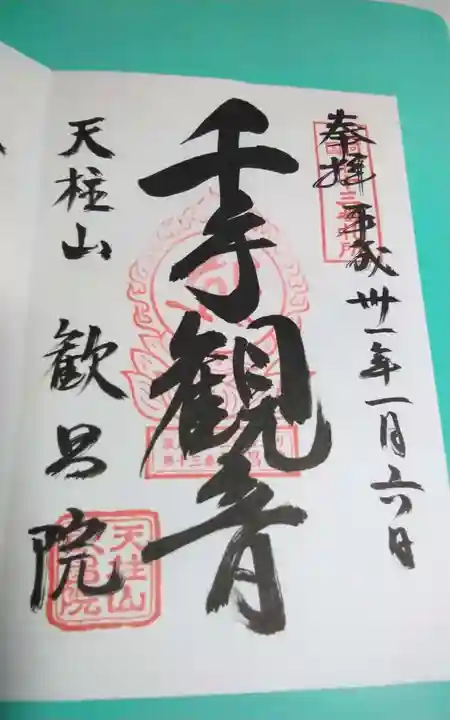 奉拝 平成卅一年一月六日
千手観音
天柱山 歓昌院
天柱山
歓昌院